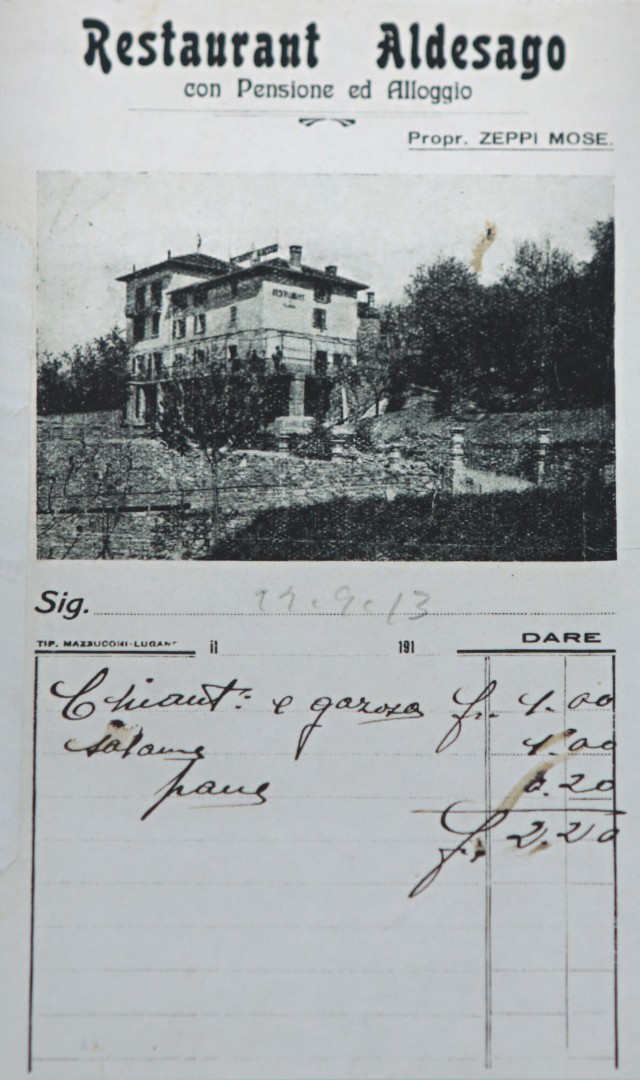 Restaurant Aldesago
con Pensione ed Alloggio
Propr. ZEPPI MOSE.
RESTAURANT
Sig. 9.13
TIP. MAZZUCONI-LUGANO il 191 DARE
Chianti e gazosa fr. 1.00
salame 1.00
pane 0.20
fr. 2.20